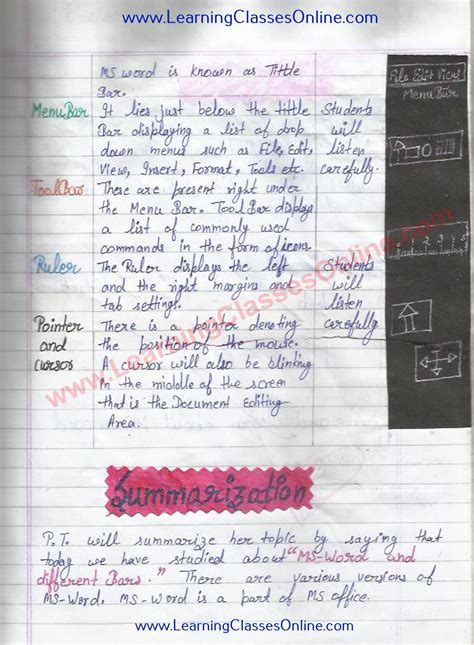 www.LearningClassesOnline.com
MS word is known as Tittle
Bar.
Menu Bar
It lies just below the tittle
Bar displaying a list of drop
down menus such as File, Edit,
View, Insert, Format, Tools etc.
Students
will
listen
carefully.
File Edit View
Menu Bar
ToolBar
These are present right under
the Menu Bar. Tool Bar displays
a list of commonly used
commands in the form of icons.
Ruler
The Ruler displays the left
and the right margins and
tab settings.
Students
will
listen
carefully
1 2 3 4 5
Pointer
and
cursor
There is a pointer denoting
the position of the mouse.
A cursor will also be blinking
in the middle of the screen
that is the Document Editing
Area.
www.LearningClassesOnline.com
Summarization
P.T. will summarize her topic by saying that
today we have studied about "MS-Word and
different Bars." There are various versions of
MS-Word. MS-Word is a part of MS office.
www.LearningClassesOnline.com